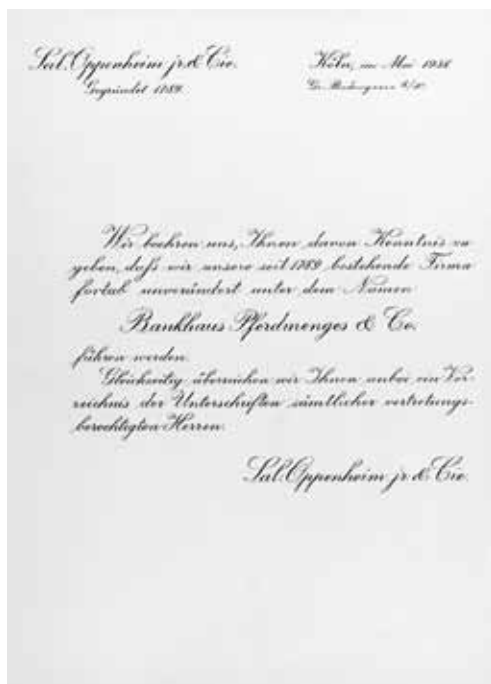 Sal. Oppenheim jr. & Cie.
Gegründet 1789.
Köln, im Mai 1938
Gr. Budengasse 8/10
Wir beehren uns, Ihnen davon Kenntnis zu
geben, daß wir unsere seit 1789 bestehende Firma
fortab unverändert unter dem Namen
Bankhaus Pferdmenges & Co.
führen werden.
Gleichzeitig überreichen wir Ihnen anbei ein Ver-
zeichnis der Unterschriften sämtlicher vertretungs-
berechtigten Herren.
Sal. Oppenheim jr. & Cie.